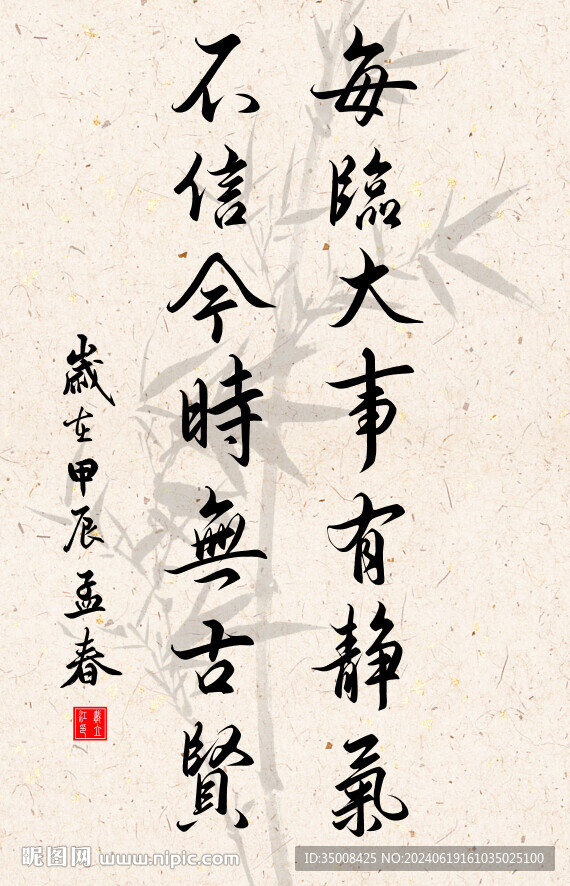 每臨大事有静氣
不信今時無古賢
歲在甲辰孟春
昵图网 www.nipic.com
ID:35008425 NO:20240619161035025100